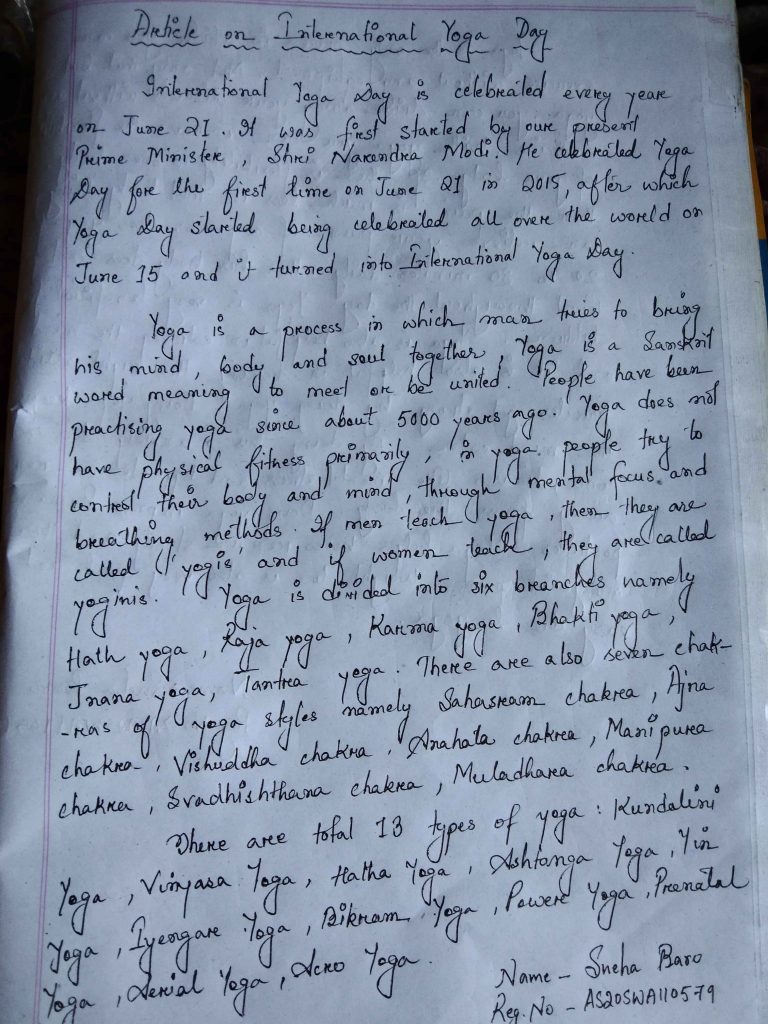 Article on International Yoga Day
International Yoga Day is celebrated every year
on June 21. It was first started by our present
Prime Minister, Shri Narendra Modi. He celebrated Yoga
Day for the first time on June 21 in 2015, after which
Yoga Day started being celebrated all over the world on
June 15 and it turned into International Yoga Day.
Yoga is a process in which man tries to bring
his mind, body and soul together, Yoga is a Sanskrit
word meaning to meet or be united. People have been
practising yoga since about 5000 years ago. Yoga does not
have physical fitness primarily, in yoga people try to
control their body and mind, through mental focus and
breathing methods. If men teach yoga, then they are
called 'yogis' and if women teach, they are called
yoginis. Yoga is divided into six branches namely
Hath yoga, Raja yoga, Karma yoga, Bhakti yoga,
Jnana yoga, Tantra yoga. There are also seven chak-
-ras of yoga styles namely Sahasram chakra, Ajna
chakra, Vishuddha chakra, Anahata chakra, Manipura
chakra, Svadhishthana chakra, Muladhara chakra.
There are total 13 types of yoga: Kundalini
Yoga, Vinyasa Yoga, Hatha Yoga, Ashtanga Yoga, Yin
Yoga, Iyengar Yoga, Bikram Yoga, Power Yoga, Prenatal
Yoga, Aerial Yoga, Acro Yoga.
Name - Sneha Baro
Reg. No - AS20SWA110579